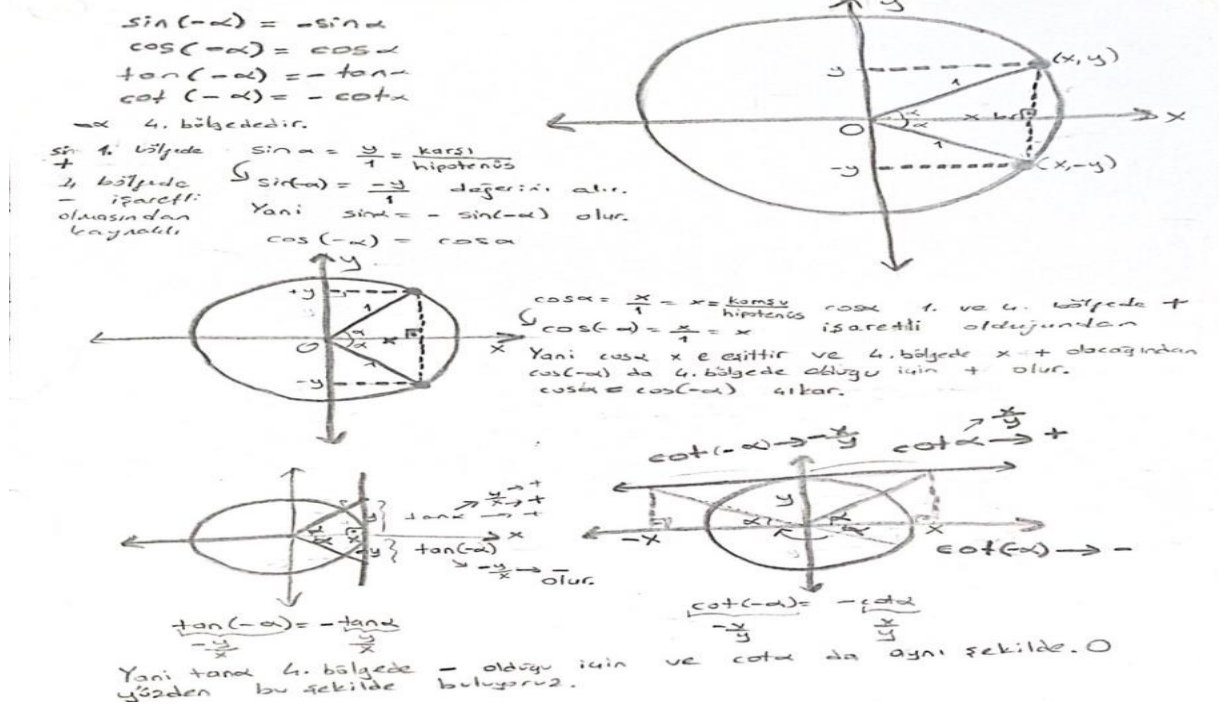 sin(-α) = -sinα
cos(-α) = cosα
tan(-α) = -tanα
cot(-α) = -cotα
-α 4. bölgededir.
sin 1. bölgede
+
4. bölgede
- işaretli
olmasından
kaynaklı
sinα = y/1 = karşı/hipotenüs
sin(-α) = -y/1 değerini alır.
Yani sinα = - sin(-α) olur.
y
(x,y)
y
1
α
O
α
x
x
1
-y
(x,-y)
cos(-α) = cosα
y
+y
1
α
O
x
x
1
-y
cosα = x/1 = x = komşu/hipotenüs cosα 1. ve 4. bölgede +
cos(-α) = x/1 = x işaretli olduğundan
Yani cosα x e eşittir ve 4. bölgede x + olacağından
cos(-α) da 4. bölgede olduğu için + olur.
cosα = cos(-α) çıkar.
y/x → +
tanα → +
y
x
-y
x
tan(-α)
-y/x → - olur.
tan(-α) = -tanα
-y/x y/x
cot(-α) → -x/y
x/y
cotα → +
y
α
α
α
-x
x
cot(-α) → -
cot(-α) = -cotα
-x/y x/y
Yani tanα 4. bölgede - olduğu için ve cotα da aynı şekilde. O
yüzden bu şekilde buluyoruz.